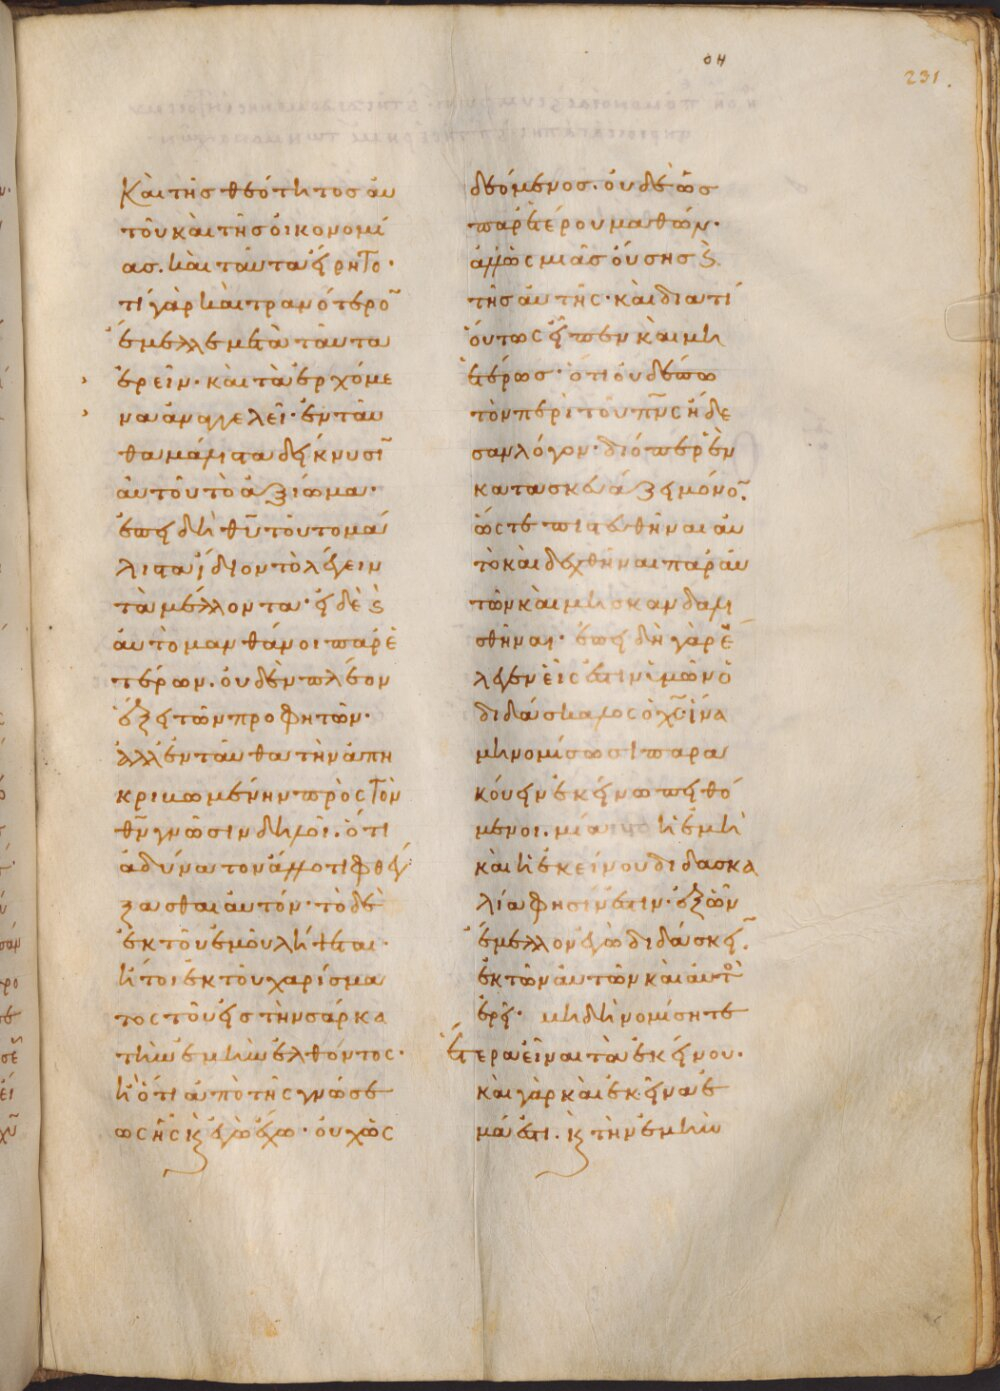 οη
231.
Καὶ τῆς θεότητος αὐ
τοῦ καὶ τῆς οἰκονομί
ας. καὶ ταῦτα εἴρητο·
τί γὰρ καὶ τρανότερο̅
ἔμελλε μετὰ ταῦτα
ἐρεῖν· καὶ τὰ ἐρχόμε
να ἀναγγελεῖ· ἐνταῦ
θα μάλιστα δείκνυσι̅
αὐτοῦ τὸ ἀξίωμα·
ἐπειδὴ θ̅υ̅ τοῦτο μά
λιστα ἴδιον τὸ λέγειν
τὰ μέλλοντα· εἰ δὲ κ̀
αὐτὸ μανθάνοι παρ' ἑ
τέρων. οὐδὲν πλέον
ἕξει τῶν προφητῶν·
ἀλλ' ἐνταῦθα τὴν ἀπη
κριβωμένην πρὸς τὸν
θ̅ν̅ γνῶσιν δηλοῖ. ὅτι
ἀδύνατον ἄλλο τι φθέγ
ξασθαι αὐτόν· τὸ δὲ
ἐκ τοῦ ἐμοῦ λήψεται·
ἤτοι ἐκ τοῦ χαρίσμα
τος τοῦ εἰς τὴν σάρκα
τὴν ἐμὴν ἐλθόντος·
ἢ ὅτι ἀπὸ τῆς γνώσε
ως ἧς κ̀ ἐγὼ ἔχω· οὐχ ὡς
δεόμενος. οὐδὲ ὡς
παρ' ἑτέρου μαθών·
ἀλλ' ὡς μιᾶς οὔσης κ̀
τῆς αὐτῆς· καὶ διατί
οὕτως εἶπεν καὶ μὴ
ἑτέρως· ὅτι οὐδέπω
τὸν περὶ τοῦ π̅ν̅ς ᾔδε
σαν λόγον· διόπερ ἓν
κατασκευάζει μόνο̅·
ὥστε πιστευθῆναι αὐ
τὸ καὶ δεχθῆναι παρ' αὐ
τῶν καὶ μὴ σκανδαλι
σθῆναι· ἐπειδὴ γὰρ ἔ
λεγεν εἷς ἐστιν ὑμῶν ὁ
διδάσκαλος ὁ χ̅ς̅· ἵνα
μὴ νομίσωσι παρα
κούειν ἐκείνω πειθό
μενοι. μία ἡ ἐμὴ
καὶ ἡ ἐκείνου διδασκα
λία φησίν ἐστιν· ἐξ ὧν
ἔμελλον ἐγὼ διδάσκει̅·
ἐκ τῶν αὐτῶν καὶ αὐτὸ
ἐρεῖ· μὴ δὴ νομίσητε
ἕτερα εἶναι τὰ ἐκείνου·
καὶ γὰρ καὶ ἐκεῖνα ἐ
μά ἐστι. κ̀ τὴν ἐμὴν